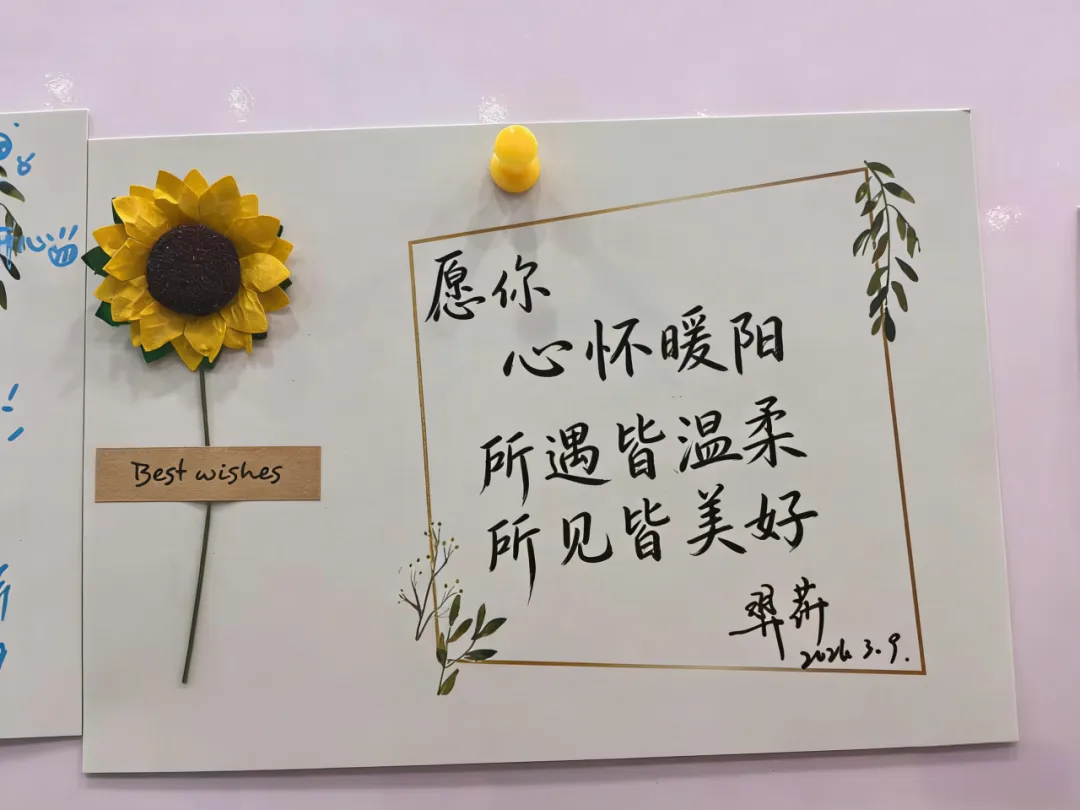 Best wishes
愿你
心怀暖阳
所遇皆温柔
所见皆美好
2026.3.9.